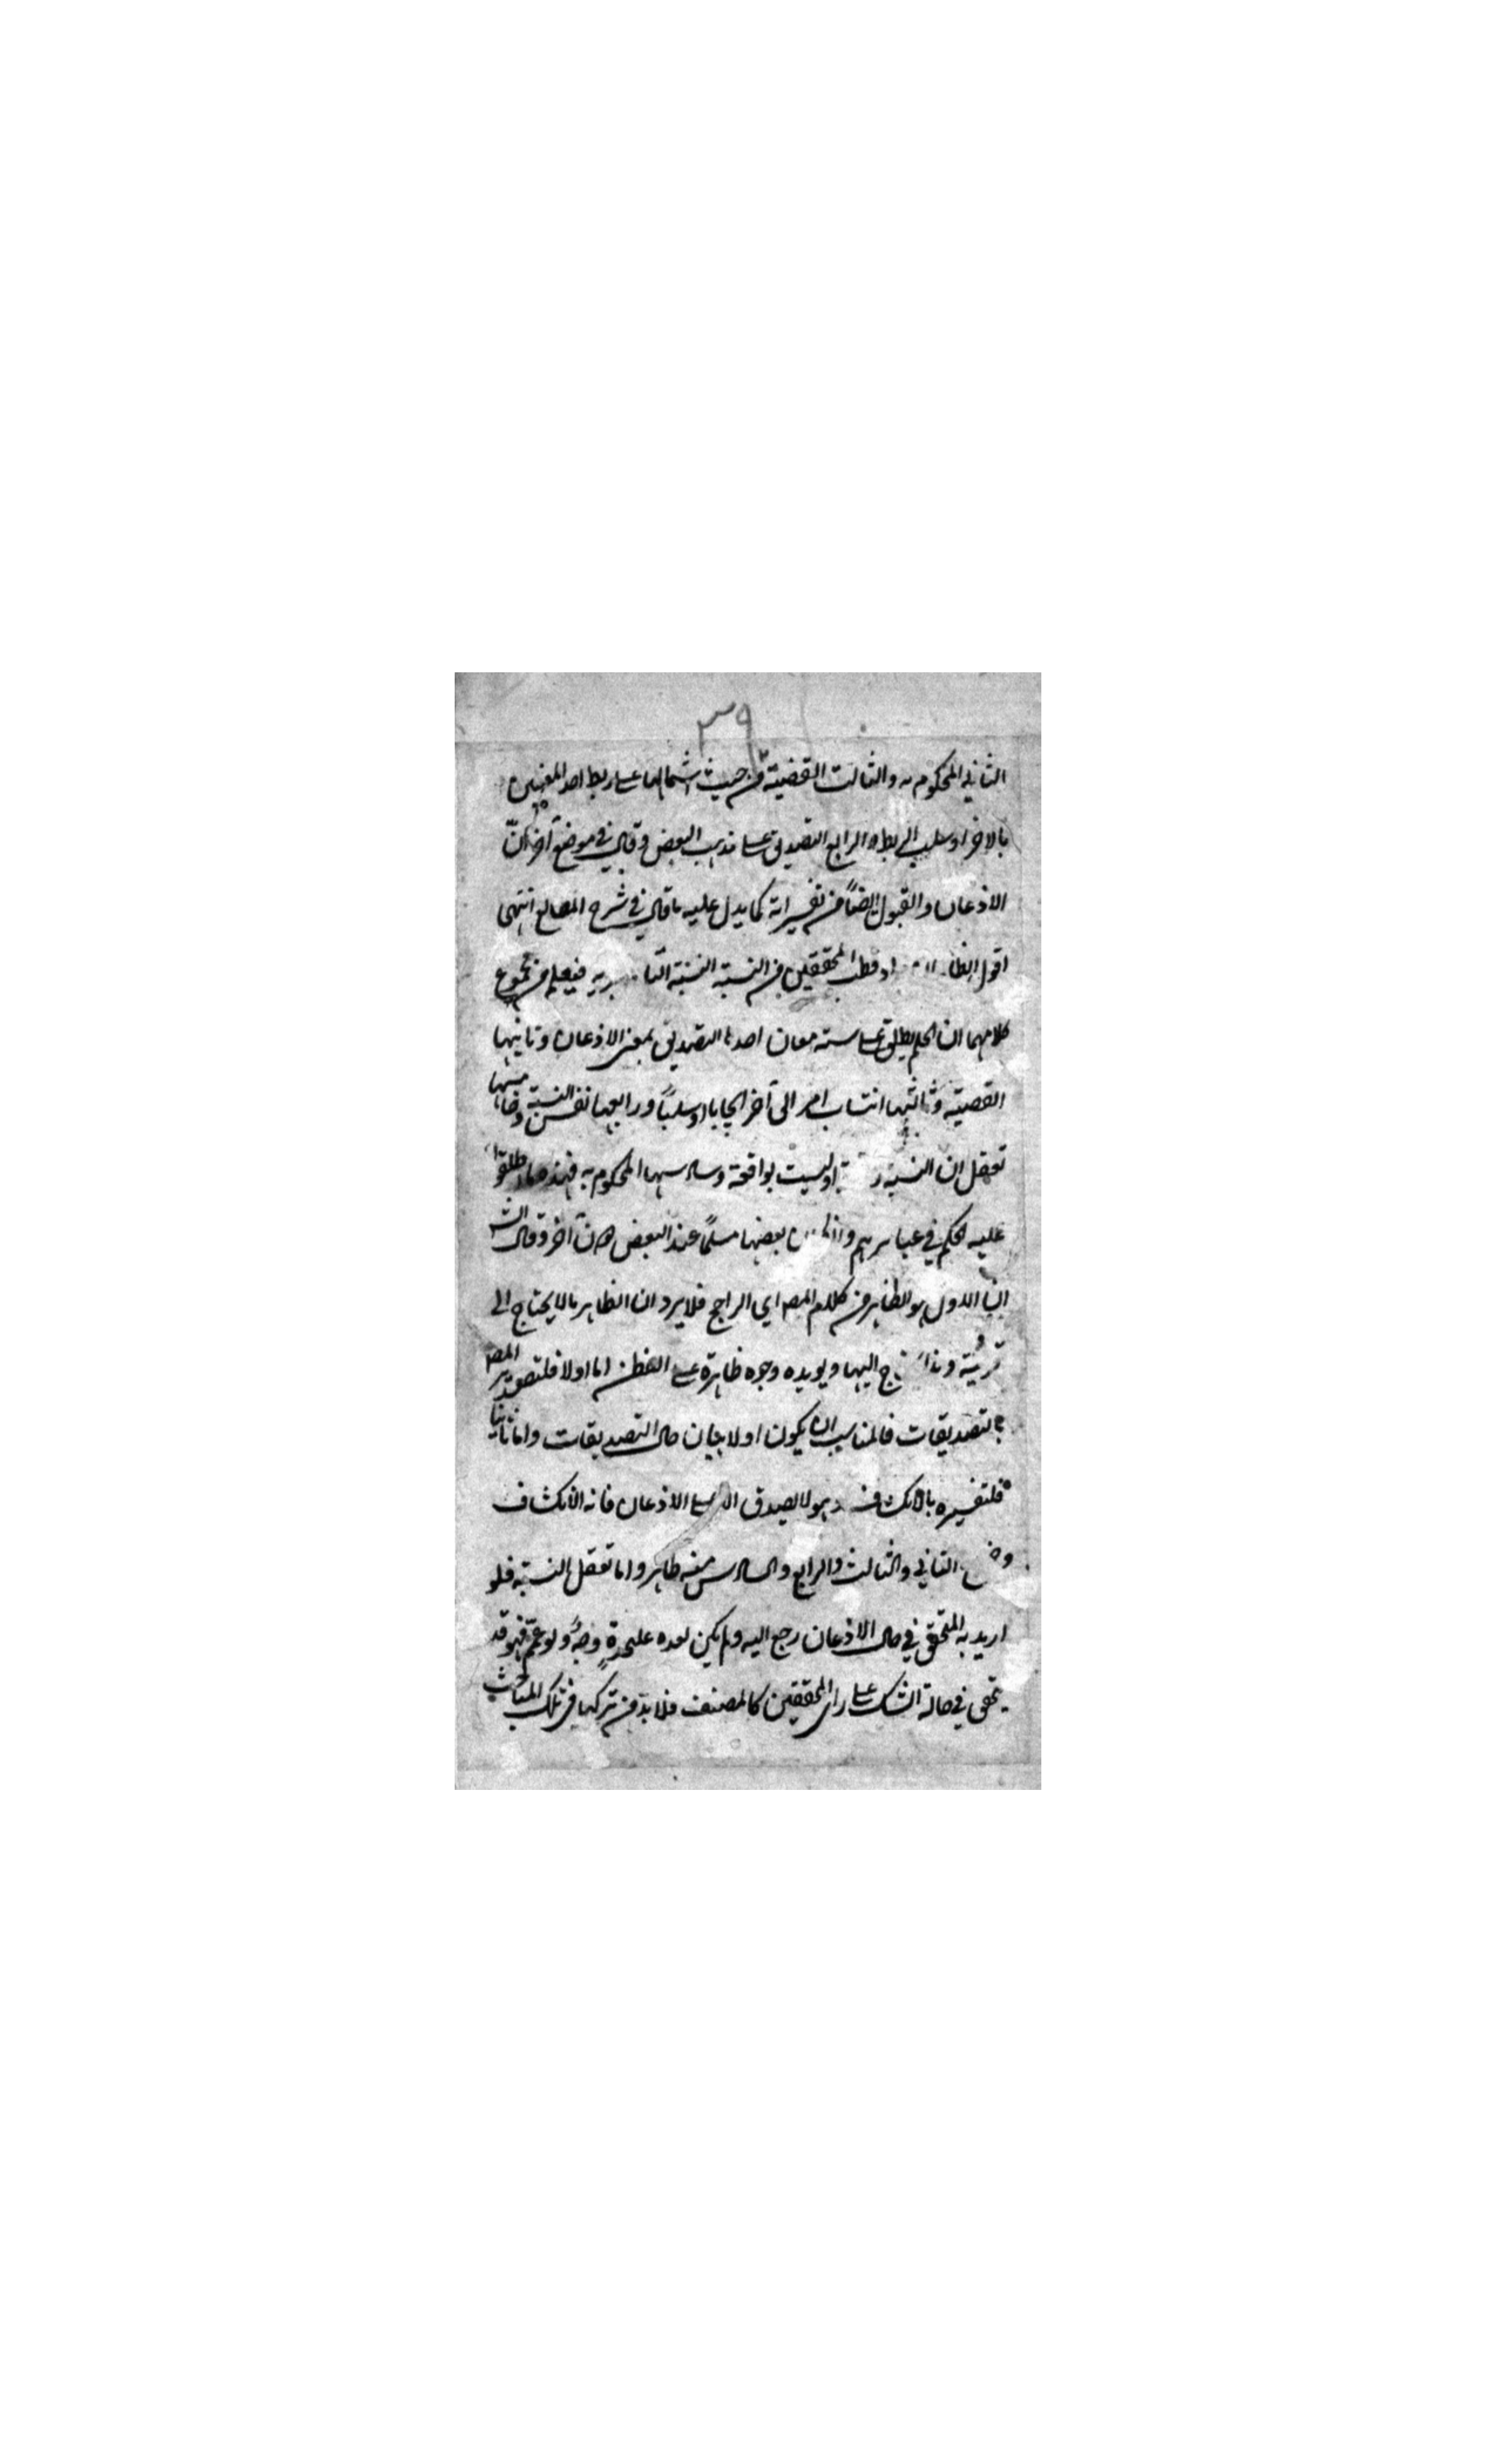 ٣٩
الثاني المحكوم به والثالث القضية من حيث اشتمالها على ربط احد المعنيين
بالاخر او سلب الربط والرابع التصديق على مذهب البعض وقال في موضع آخر انّ
الاذعان والقبول ايضاً من تفسيراته كما يدل عليه ما قال في شرح المطالع انتهى
اقول الظا المحققين من النسبة النسبة فيعلم من مجموع
كلامهما ان الحكم يطلق على ستة معان احدها التصديق بمعنى الاذعان وثانيها
القضية وثالثها انتساب امر الى آخر ايجابا او سلباً ورابعها نفس النسبة وخامسها
تعقل ان النسبة او ليست بواقعة وسادسها المحكوم به فهذه ما اطلقوا
عليه الحكم في عباراتهم وان بعضها مسلماً عند البعض دون آخر وقال الش
ان الاول هو الظاهر من كلام المص اي الراجح فلا يرد ان الظاهر ما لا يحتاج الى
قرينة وهذا اليها ويويده وجوه ظاهرة على الفطن اما اولا فلتصدير المص
بالتصديقات فالمناسب ان يكون اولا بيان حال التصديقات واما ثانيا
فلتفسيره بالانكشاف وهو لا يصدق الا على الاذعان فانه الانكشاف
الثاني والثالث والرابع والسادس منه ظاهر واما تعقل النسبة فلو
اريد به المتحقق في حال الاذعان رجع اليه ولم يكن لعده عليحدة وجهٌ ولو عمّ فهو قد
يتحقق في حالة الشك على راى المحققين كالمصنف فلا بد من تركها في تلك المباحث